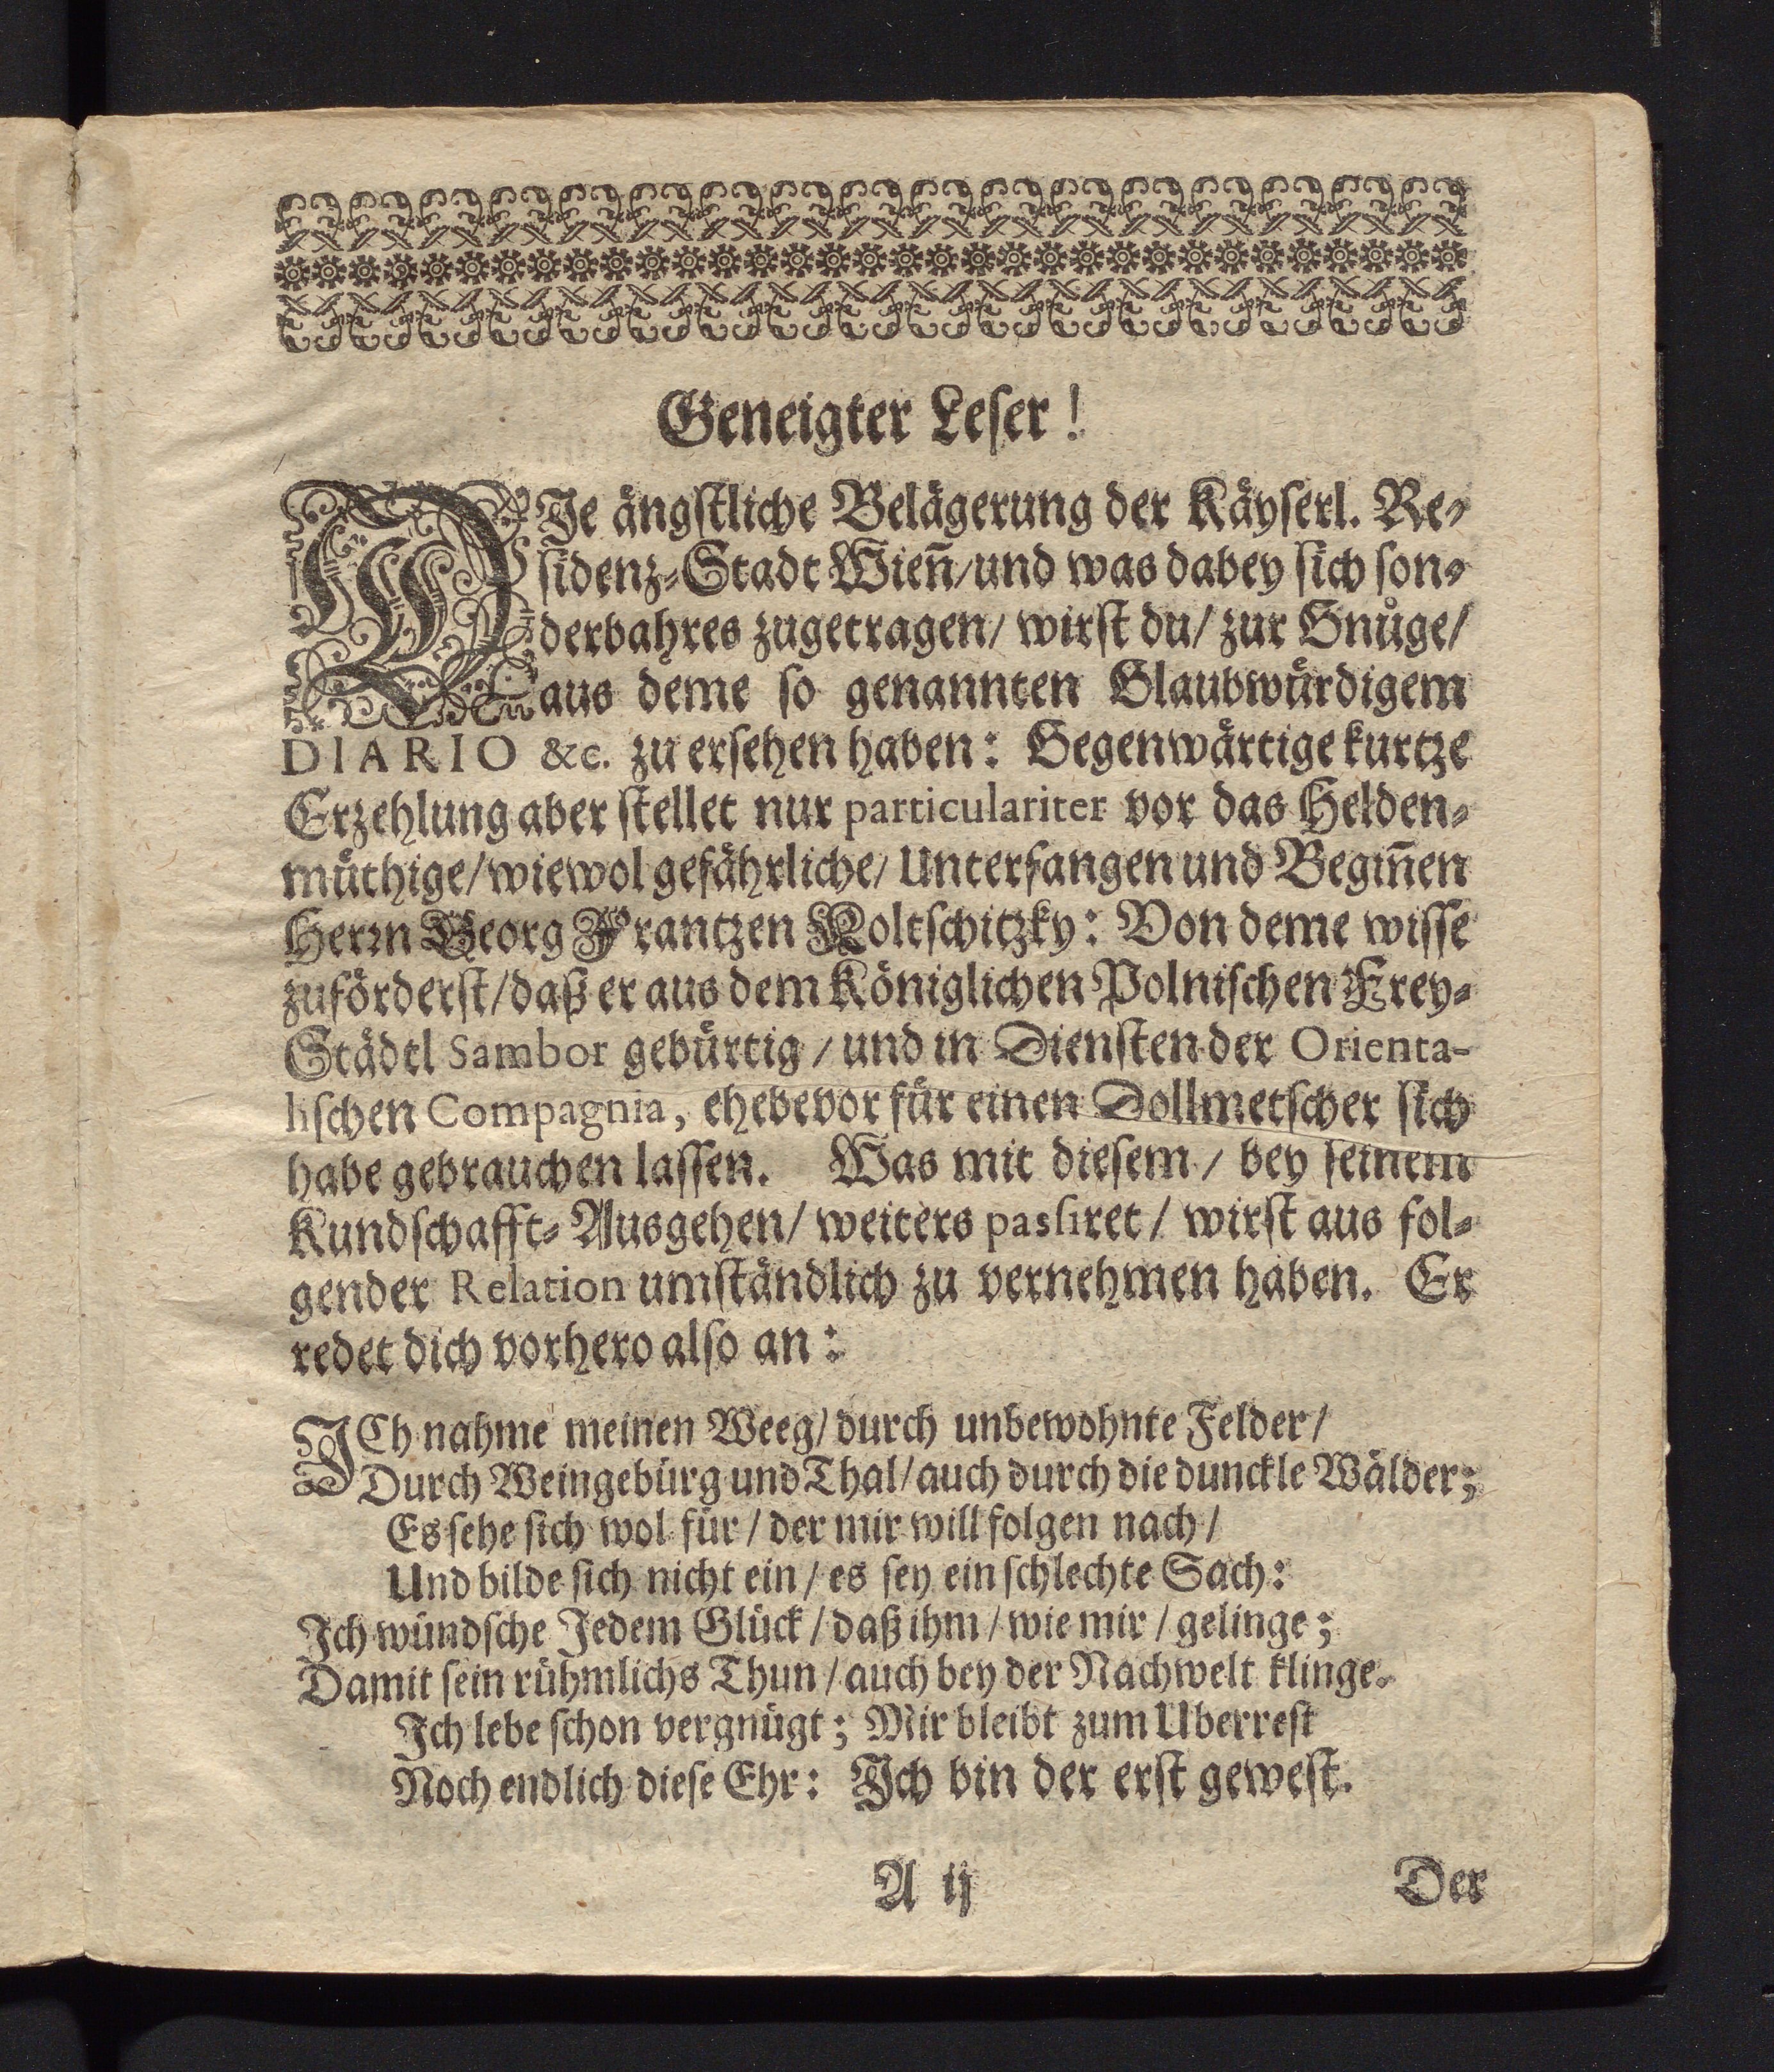 Geneigter Leser!
WIe ängstliche Belägerung der Käyserl. Re-
sidenz-Stadt Wieñ/und was dabey sich son-
derbahres zugetragen/ wirst du/ zur Gnůge/
aus deme so genannten Glaubwürdigem
DIARIO &c. zu ersehen haben: Gegenwärtige kurtze
Erzehlung aber stellet nur particulariter vor das Helden-
müthige/wiewol gefährliche/ Unterfangen und Begiñen
Herrn Georg Frantzen Koltschitzky: Von deme wisse
zuförderst/daß er aus dem Königlichen Polnischen Frey-
Städtl Sambor gebürtig / und in Diensten der Orienta-
lischen Compagnia, ehebevor für einen Dollmetscher sich
habe gebrauchen lassen. Was mit diesem / bey seinem
Kundschafft-Ausgehen/ weiters passiret / wirst aus fol-
gender Relation umständlich zu vernehmen haben. Er
redet dich vorhero also an:
ICh nahme meinen Weeg/ durch unbewohnte Felder/
Durch Weingebürg und Thal/auch durch die dunckle Wälder;
Es sehe sich wol für / der mir will folgen nach/
Und bilde sich nicht ein / es sey ein schlechte Sach:
Ich wündsche Jedem Glück / daß ihm / wie mir / gelinge;
Damit sein rühmlichs Thun / auch bey der Nachwelt klinge.
Ich lebe schon vergnügt; Mir bleibt zum Uberrest
Noch endlich diese Ehr: Ich bin der erst gewest.
A ij
Der